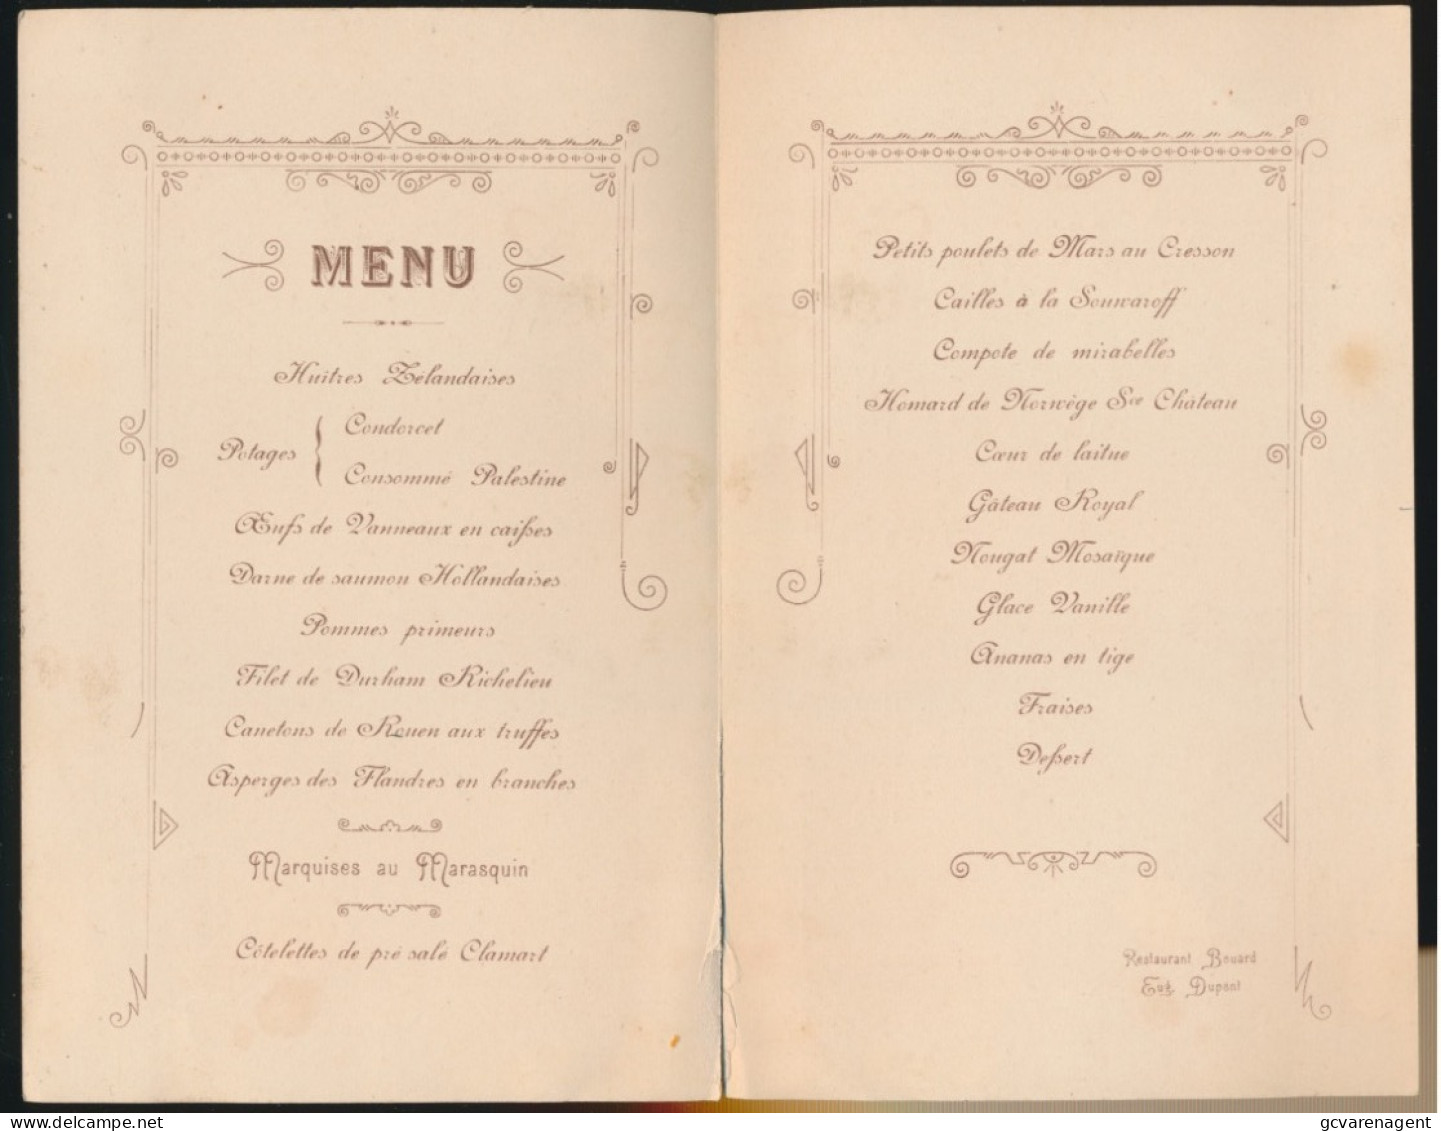 MENU
Huîtres Zélandaises
Potages { Condorcet
Consommé Palestine
Œufs de Vanneaux en caisses
Darne de saumon Hollandaises
Pommes primeurs
Filet de Durham Richelieu
Canetons de Rouen aux truffes
Asperges des Flandres en branches
Marquises au Marasquin
Côtelettes de pré salé Clamart
Petits poulets de Mars au Cresson
Cailles à la Souwaroff
Compote de mirabelles
Homard de Norwège Sce Château
Cœur de laitue
Gâteau Royal
Nougat Mosaïque
Glace Vanille
Ananas en tige
Fraises
Dessert
Restaurant Bouard
Eug. Dupont
gcvarenagent